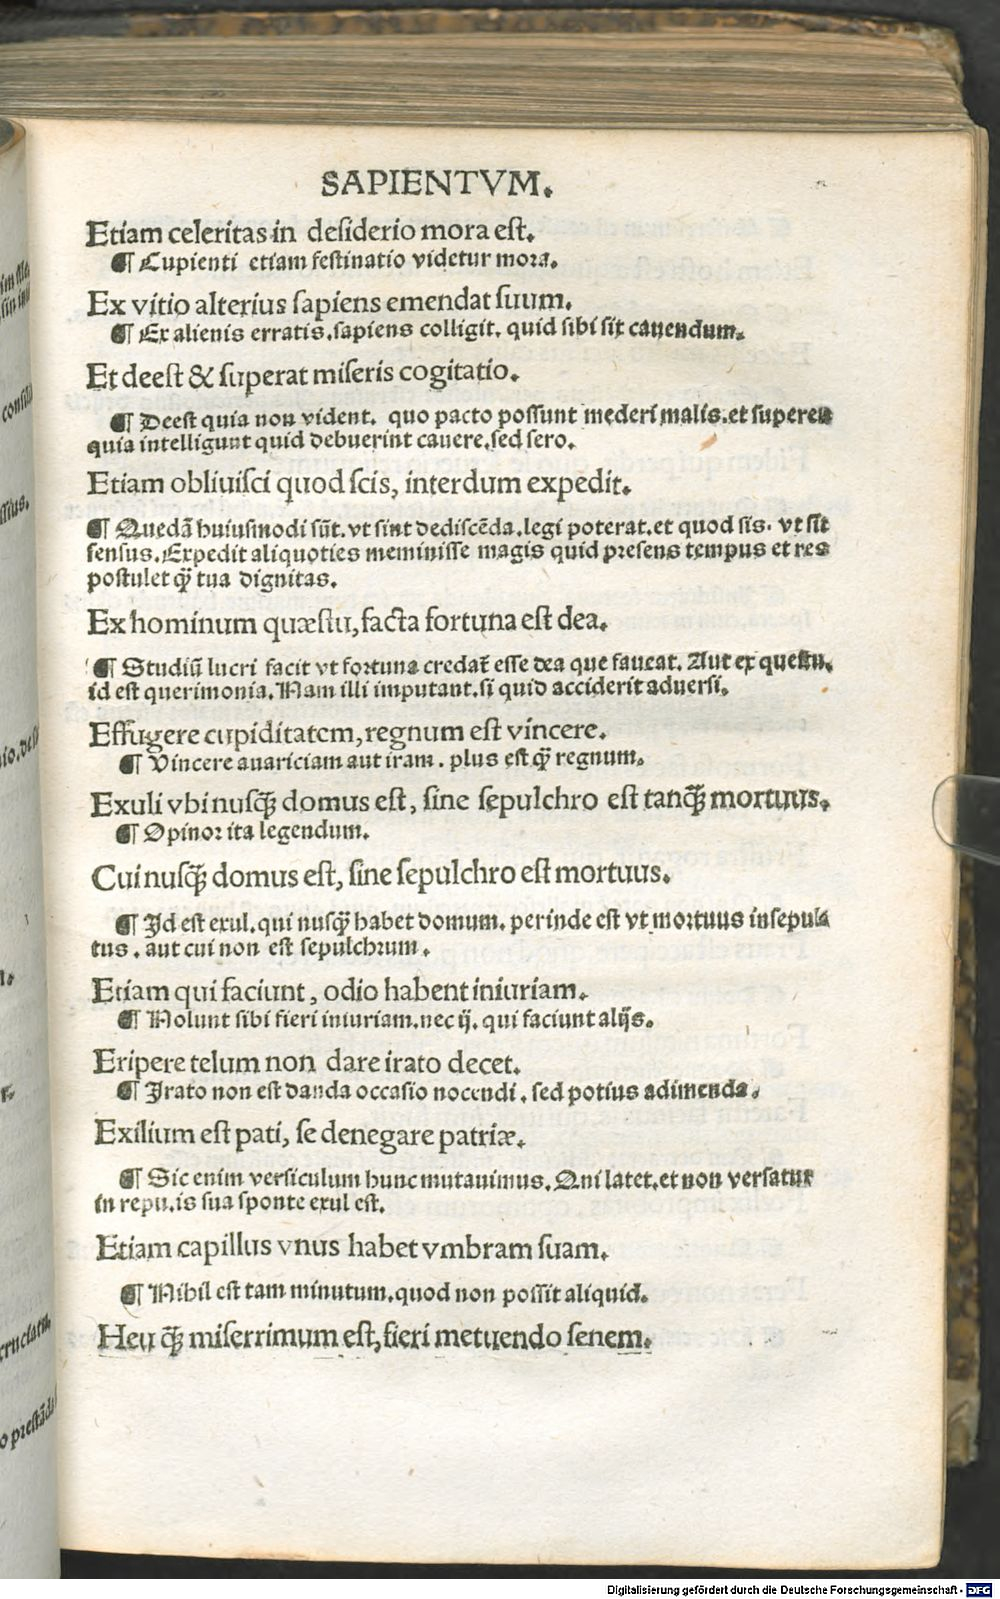 SAPIENTVM.
Etiam celeritas in desiderio mora est.
¶ Cupienti etiam festinatio videtur mora.
Ex vitio alterius sapiens emendat suum.
¶ Ex alienis erratis.sapiens colligit. quid sibi sit cauendum.
Et deest & superat miseris cogitatio.
¶ Deest quia non vident. quo pacto possunt mederi malis.et superest
quia intelligunt quid debuerint cauere.sed sero.
Etiam obliuisci quod scis, interdum expedit.
¶ Quedā huiusmodi sūt. vt sint dediscēda.legi poterat.et quod sis. vt sit
sensus. Expedit aliquoties meminisse magis quid presens tempus et res
postulet q̃ tua dignitas.
Ex hominum quæstu, facta fortuna est dea.
¶ Studiū lucri facit vt fortuna credat̃ esse dea que faueat. Aut ex questu.
id est querimonia. Nam illi imputant.si quid acciderit aduersi.
Effugere cupiditatem, regnum est vincere.
¶ Vincere auariciam aut iram. plus est q̃ regnum.
Exuli vbi nusq̃ domus est, sine sepulchro est tanq̃ mortuus.
¶ Opinor ita legendum.
Cui nusq̃ domus est, sine sepulchro est mortuus.
¶ Id est exul.qui nusq̃ habet domum. perinde est vt mortuus insepul
tus. aut cui non est sepulchrum.
Etiam qui faciunt, odio habent iniuriam.
¶ Nolunt sibi fieri iniuriam.nec ij. qui faciunt alijs.
Eripere telum non dare irato decet.
¶ Irato non est danda occasio nocendi. sed potius adimenda.
Exilium est pati, se denegare patriæ.
¶ Sic enim versiculum hunc mutauimus. Qui latet.et non versatur
in repu.is sua sponte exul est.
Etiam capillus vnus habet vmbram suam.
¶ Nihil est tam minutum.quod non possit aliquid.
Heu q̃ miserrimum est, fieri metuendo senem.
consili
ssius.
cruciatu.
o prestāda
Digitalisierung gefördert durch die Deutsche Forschungsgemeinschaft - DFG